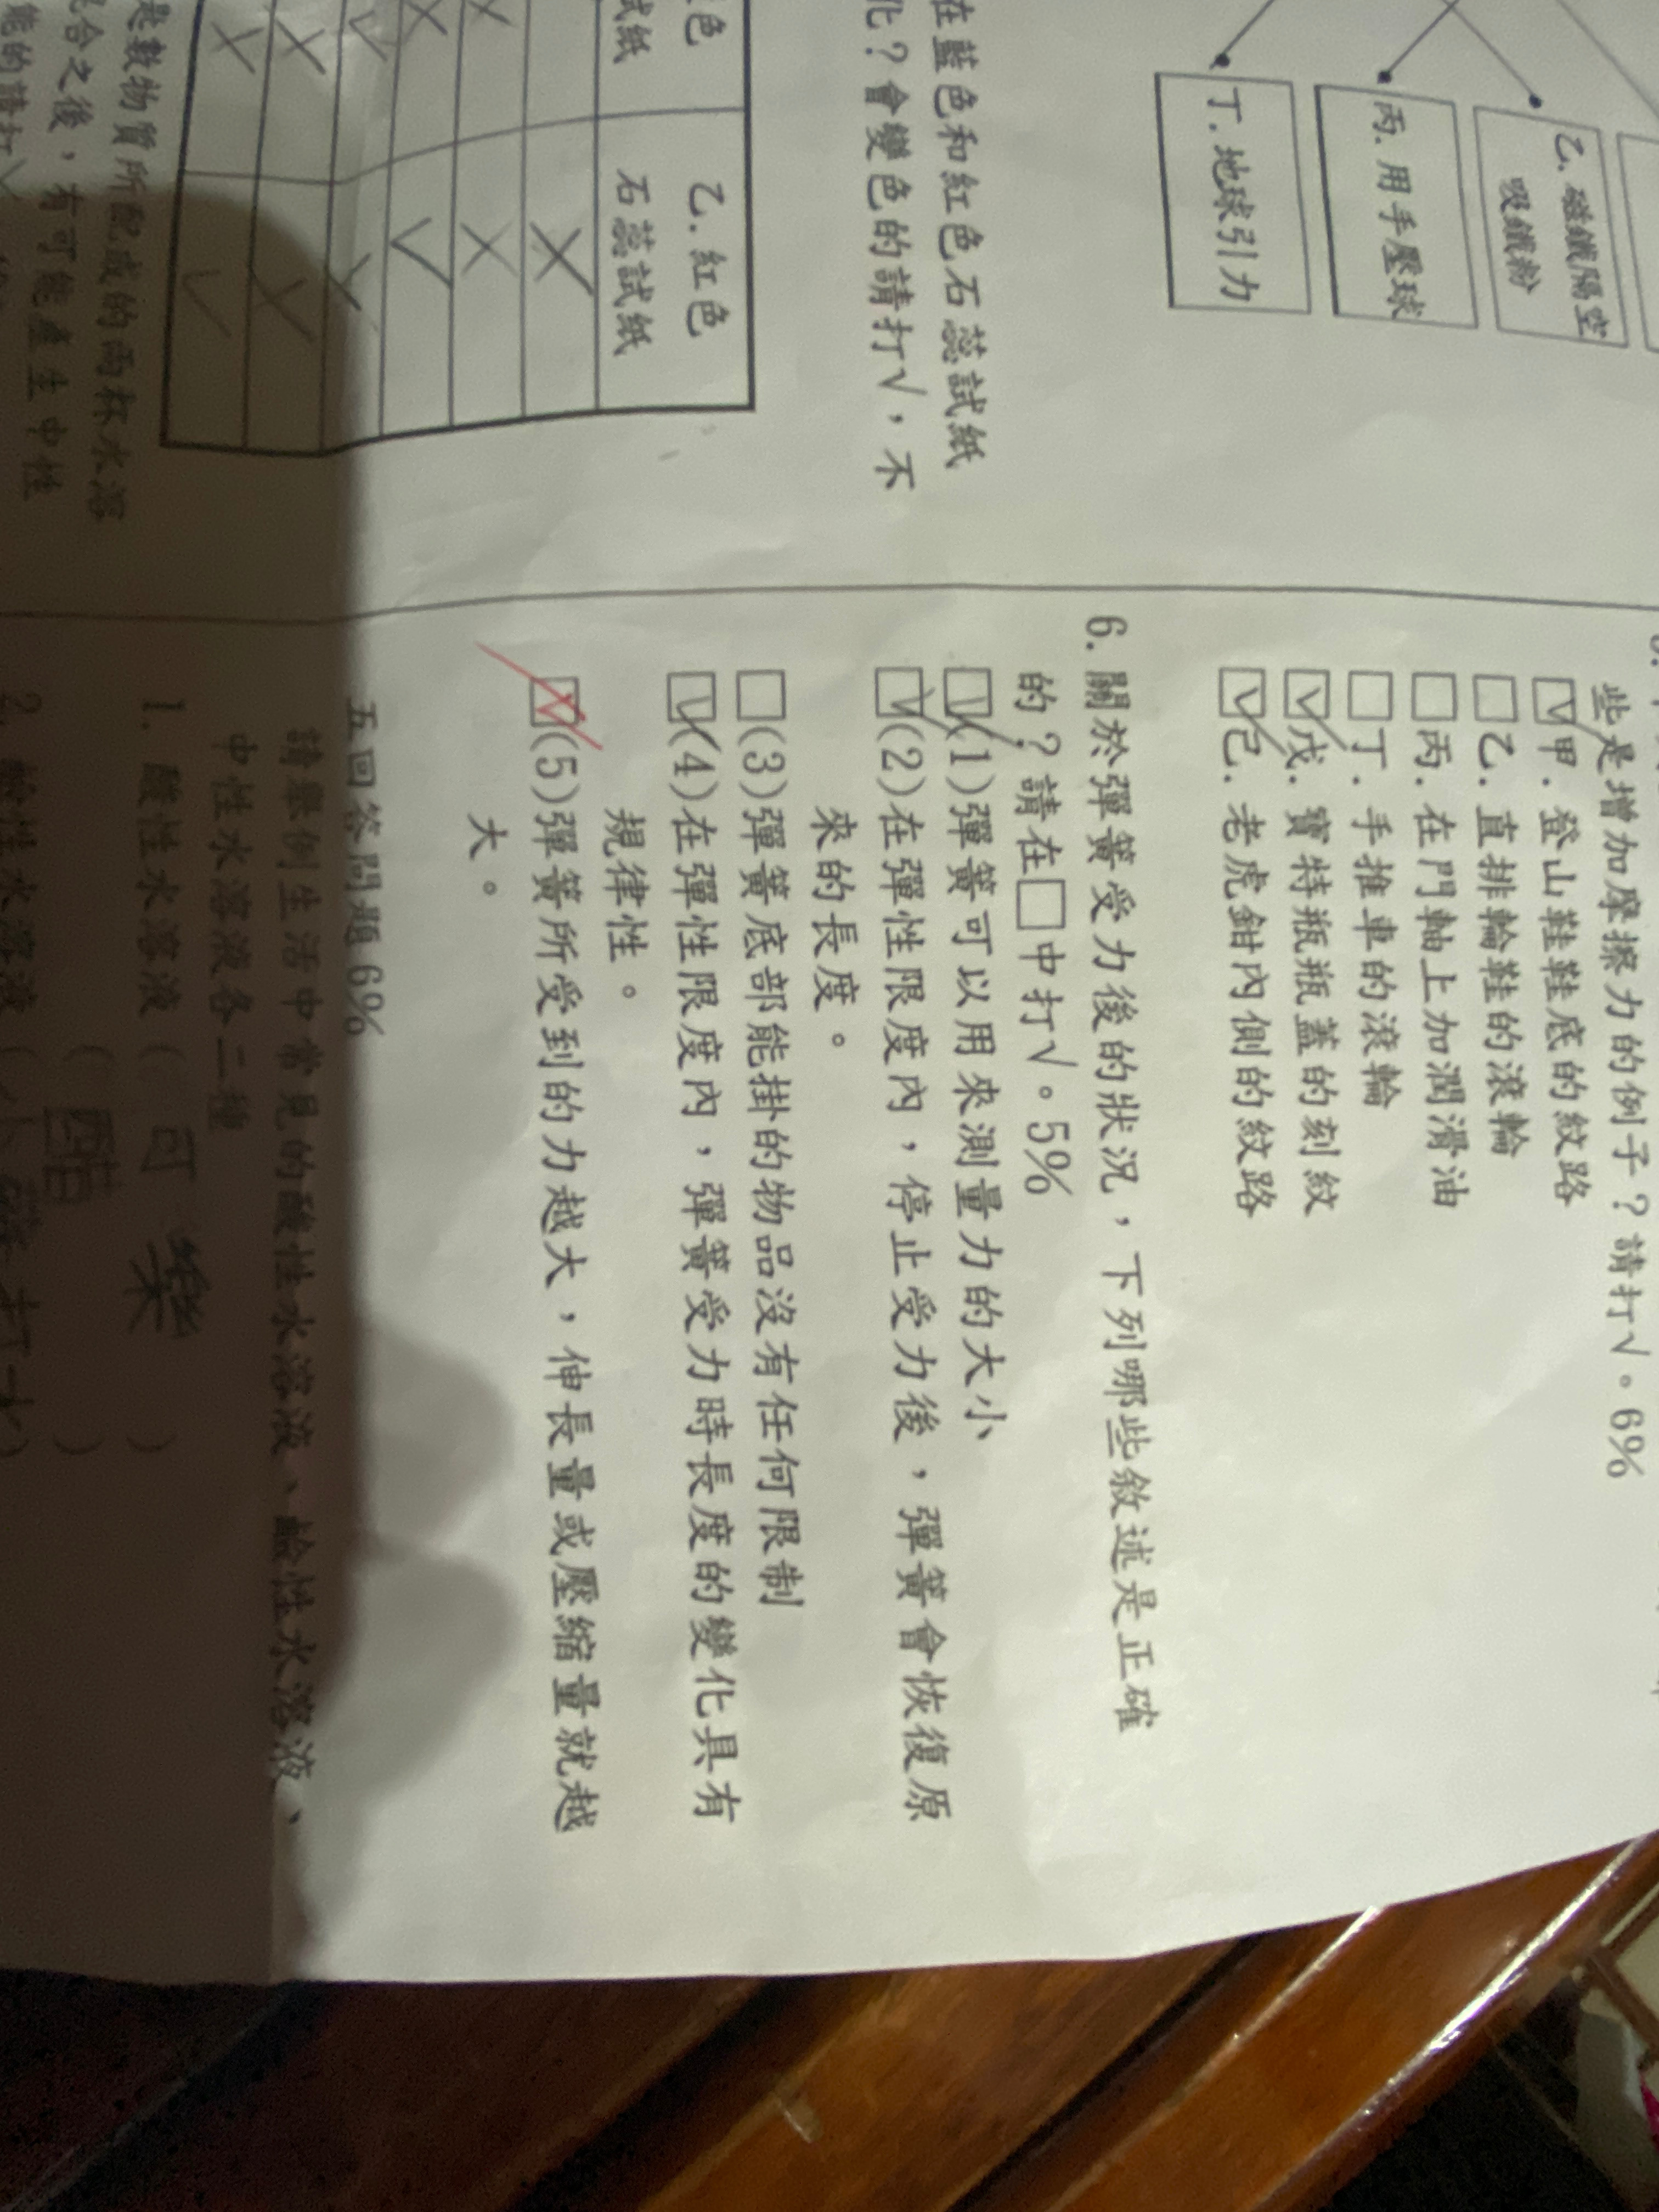 乙. 磁鐵隔空
吸鐵粉
丙. 用手壓球
丁. 地球引力
在藍色和紅色石蕊試紙
化？會變色的請打√，不
色
試紙
乙. 紅色
石蕊試紙
是數物質所配成的兩杯水溶
混合之後，有可能產生中性
些是增加摩擦力的例子？請打√。6%
☑甲. 登山鞋鞋底的紋路
□乙. 直排輪鞋的滾輪
□丙. 在門軸上加潤滑油
□丁. 手推車的滾輪
☑戊. 寶特瓶瓶蓋的刻紋
☑己. 老虎鉗內側的紋路
6. 關於彈簧受力後的狀況，下列哪些敘述是正確
的？請在□中打√。5%
☑(1)彈簧可以用來測量力的大小
☑(2)在彈性限度內，停止受力後，彈簧會恢復原
來的長度。
□(3)彈簧底部能掛的物品沒有任何限制
☑(4)在彈性限度內，彈簧受力時長度的變化具有
規律性。
☑(5)彈簧所受到的力越大，伸長量或壓縮量就越
大。
五回答問題6%
請舉例生活中常見的酸性水溶液、鹼性水溶液、
中性水溶液各二種
1. 酸性水溶液（可樂）
（醋）
2. 鹼性水溶液（小蘇打水）